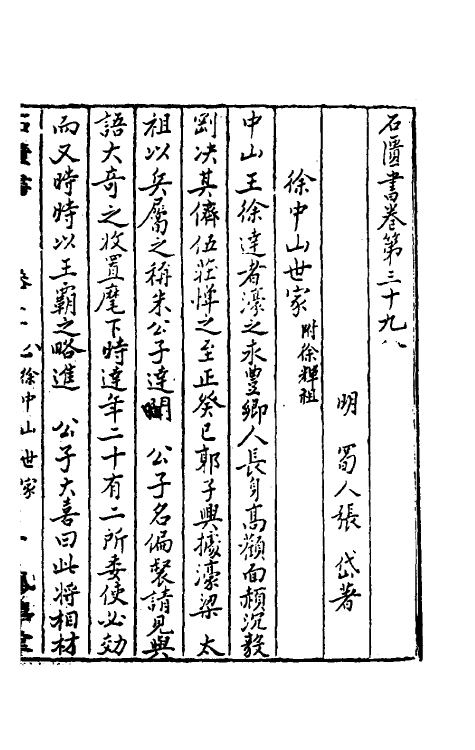 石匱書卷第三十九
明 蜀人張岱著
徐中山世家 附徐輝祖
中山王徐達者濠之永豊鄉人長身高顴面赬沉毅
剛决其儕伍莊憚之至正癸巳郭子興據濠梁 太
祖以兵屬之稱朱公子達聞 公子名偏裻請見與
語大奇之收置麾下時達年二十有二所委使必効
而又時時以王霸之略進 公子大喜曰此將相材
徐中山世家